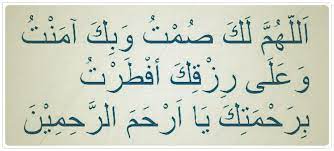 اَللّٰهُمَّ لَكَ صُمْتُ وَبِكَ آمَنْتُ
وَعَلَى رِزْقِكَ أَفْطَرْتُ
بِرَحْمَتِكَ يَا اَرْحَمَ الرَّحِمِيْنَ